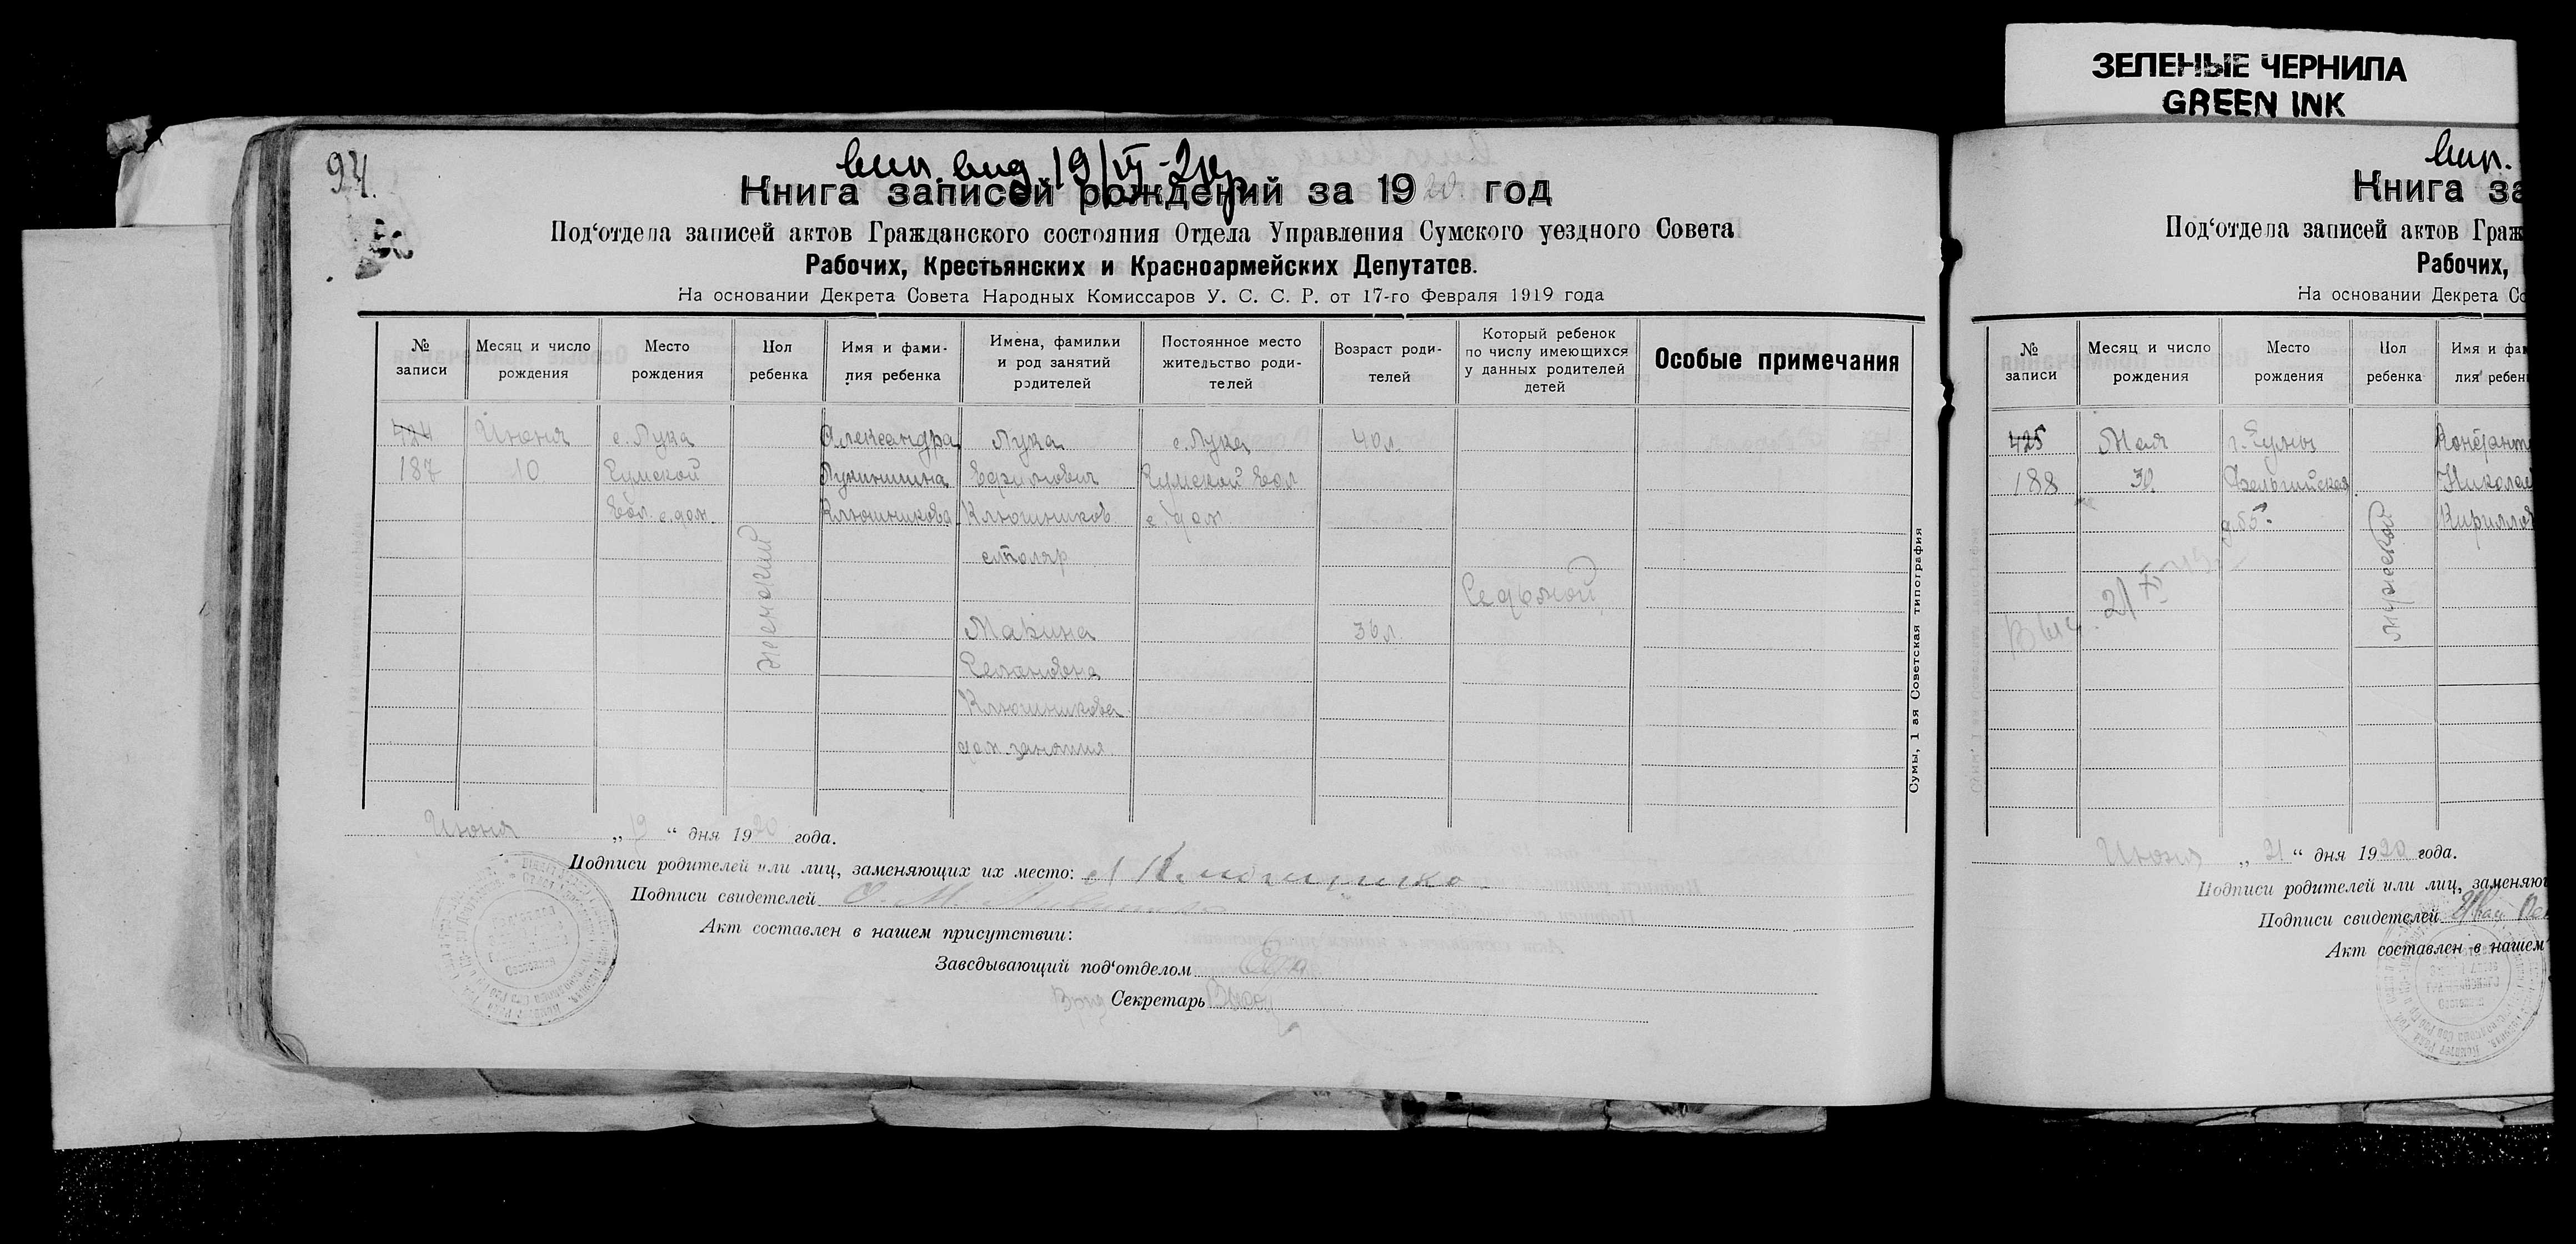 ЗЕЛЕНЫЕ ЧЕРНИЛА
GREEN INK
94.
вып. вид 19/VI-20г
Книга записей рождений за 1920. год
Под‘отдела записей актов Гражданского состояния Отдела Управления Сумского уездного Совета
Рабочих, Крестьянских и Красноармейских Депутатов.
На основании Декрета Совета Народных Комиссаров У. С. С. Р. от 17-го Февраля 1919 года
№ записи
Месяц и число рождения
Место рождения
Пол ребенка
Имя и фами-
лия ребенка
Имена, фамилии
и род занятий
родителей
Постоянное место
жительство роди-
телей
Возраст роди-
телей
Который ребенок
по числу имеющихся
у данных родителей
детей
Особые примечания
424
187
Июня
10
с. Лука
Сумской
Вол. с. дом.
женский
Александра
Лукинишна
Ключникова
Лука
Ефимович
Ключников
столяр
Марина
Семеновна
Ключникова
дом. занятия
с. Лука
Сумской Вол
с. дом.
40 л.
36 л.
Седьмой
Сумы, 1 ая Советская типография
Июня „ 19 “ дня 1920 года.
Подписи родителей или лиц, заменяющих их место:
Подписи свидетелей
Акт составлен в нашем присутствии:
Заведывающий под‘отделом
Врид Секретарь
вып.
Книга за
Под‘отдела записей актов Граж
Рабочих,
На основании Декрета Со
№ записи
Месяц и число рождения
Место рождения
Пол ребенка
Имя и фам
лия ребен
425
188
Мая
30
г. Сумы
Бельгийская
д. 55.
мужеской
Констант
Николае
Кирилло
Июня „ 21 “ дня 1920 года.
Подписи родителей или лиц, заменяю
Подписи свидетелей
Акт составлен в нашем